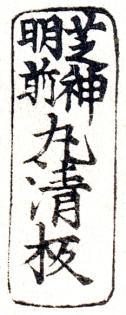 芝神
明前
丸清板